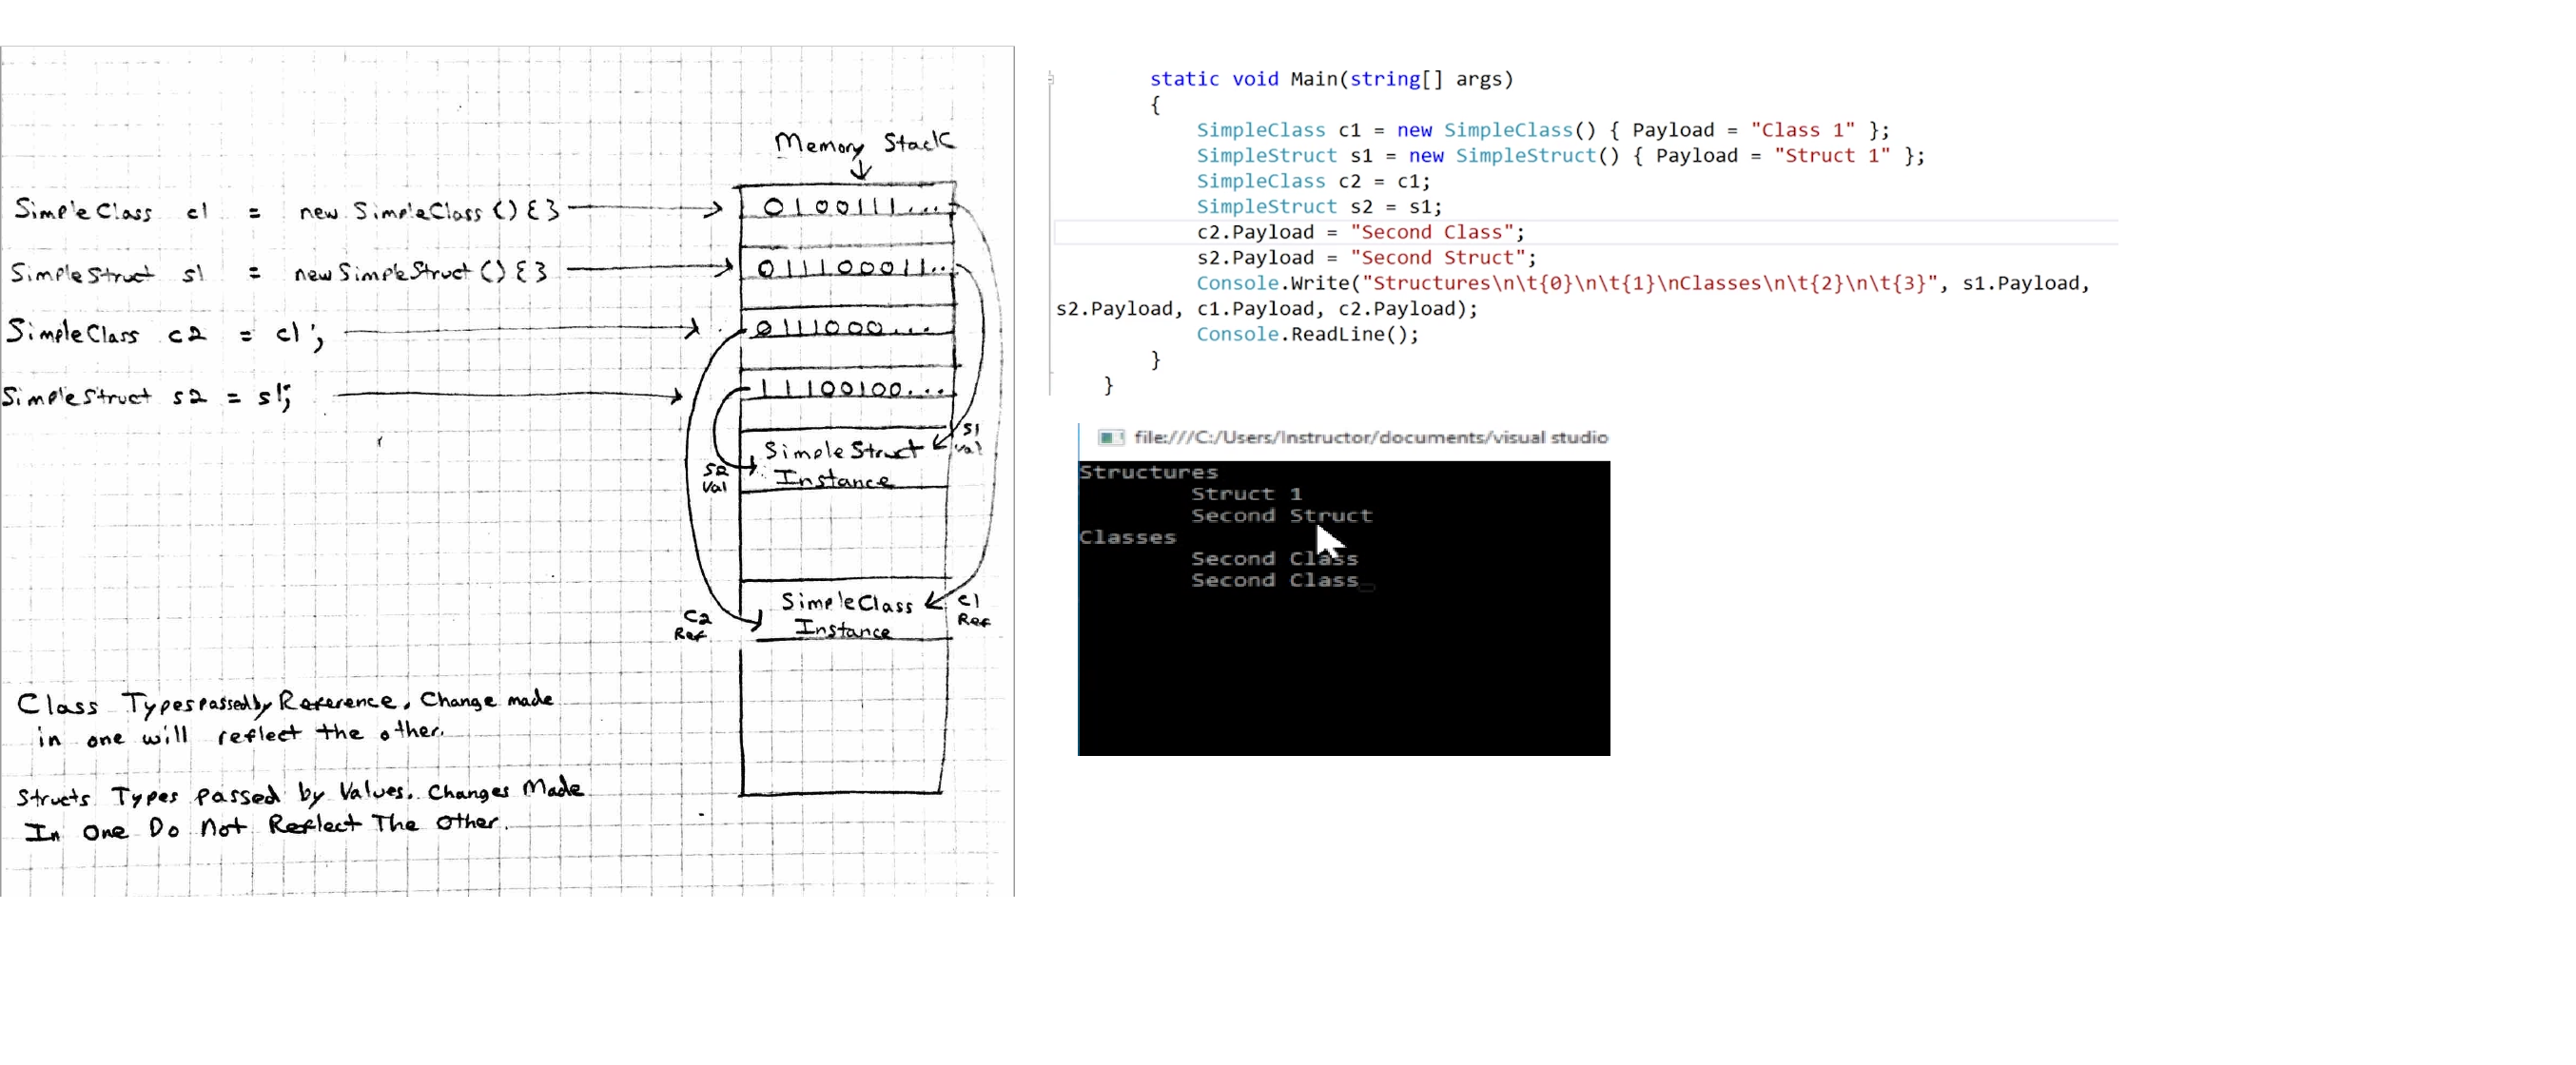 Memory Stack
SimpleClass c1 = new SimpleClass(){}
0100111....
SimpleStruct s1 = new SimpleStruct(){}
011100011..
SimpleClass c2 = c1;
0111000...
SimpleStruct s2 = s1;
11100100...
s1
Val
SimpleStruct
Instance
S2
Val
SimpleClass
Instance
C1
Ref
C2
Ref
Class Types passed by Reference. Change made
in one will reflect the other.
Structs Types Passed by Values. Changes Made
In One Do Not Reflect The Other.
static void Main(string[] args)
{
SimpleClass c1 = new SimpleClass() { Payload = "Class 1" };
SimpleStruct s1 = new SimpleStruct() { Payload = "Struct 1" };
SimpleClass c2 = c1;
SimpleStruct s2 = s1;
c2.Payload = "Second Class";
s2.Payload = "Second Struct";
Console.Write("Structures\n\t{0}\n\t{1}\nClasses\n\t{2}\n\t{3}", s1.Payload,
s2.Payload, c1.Payload, c2.Payload);
Console.ReadLine();
}
}
file:///C:/Users/Instructor/documents/visual studio
Structures
Struct 1
Second Struct
Classes
Second Class
Second Class